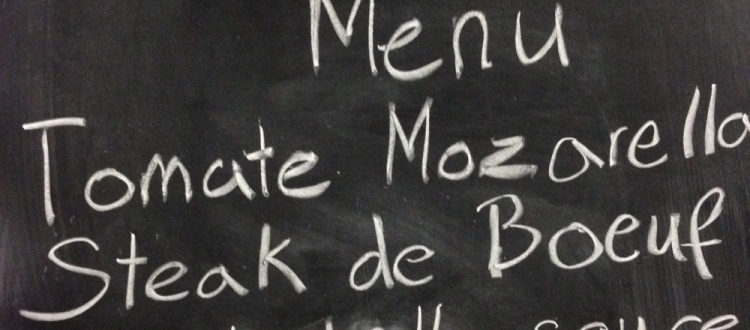 Menu
Tomate Mozarella
Steak de Boeuf
sauce